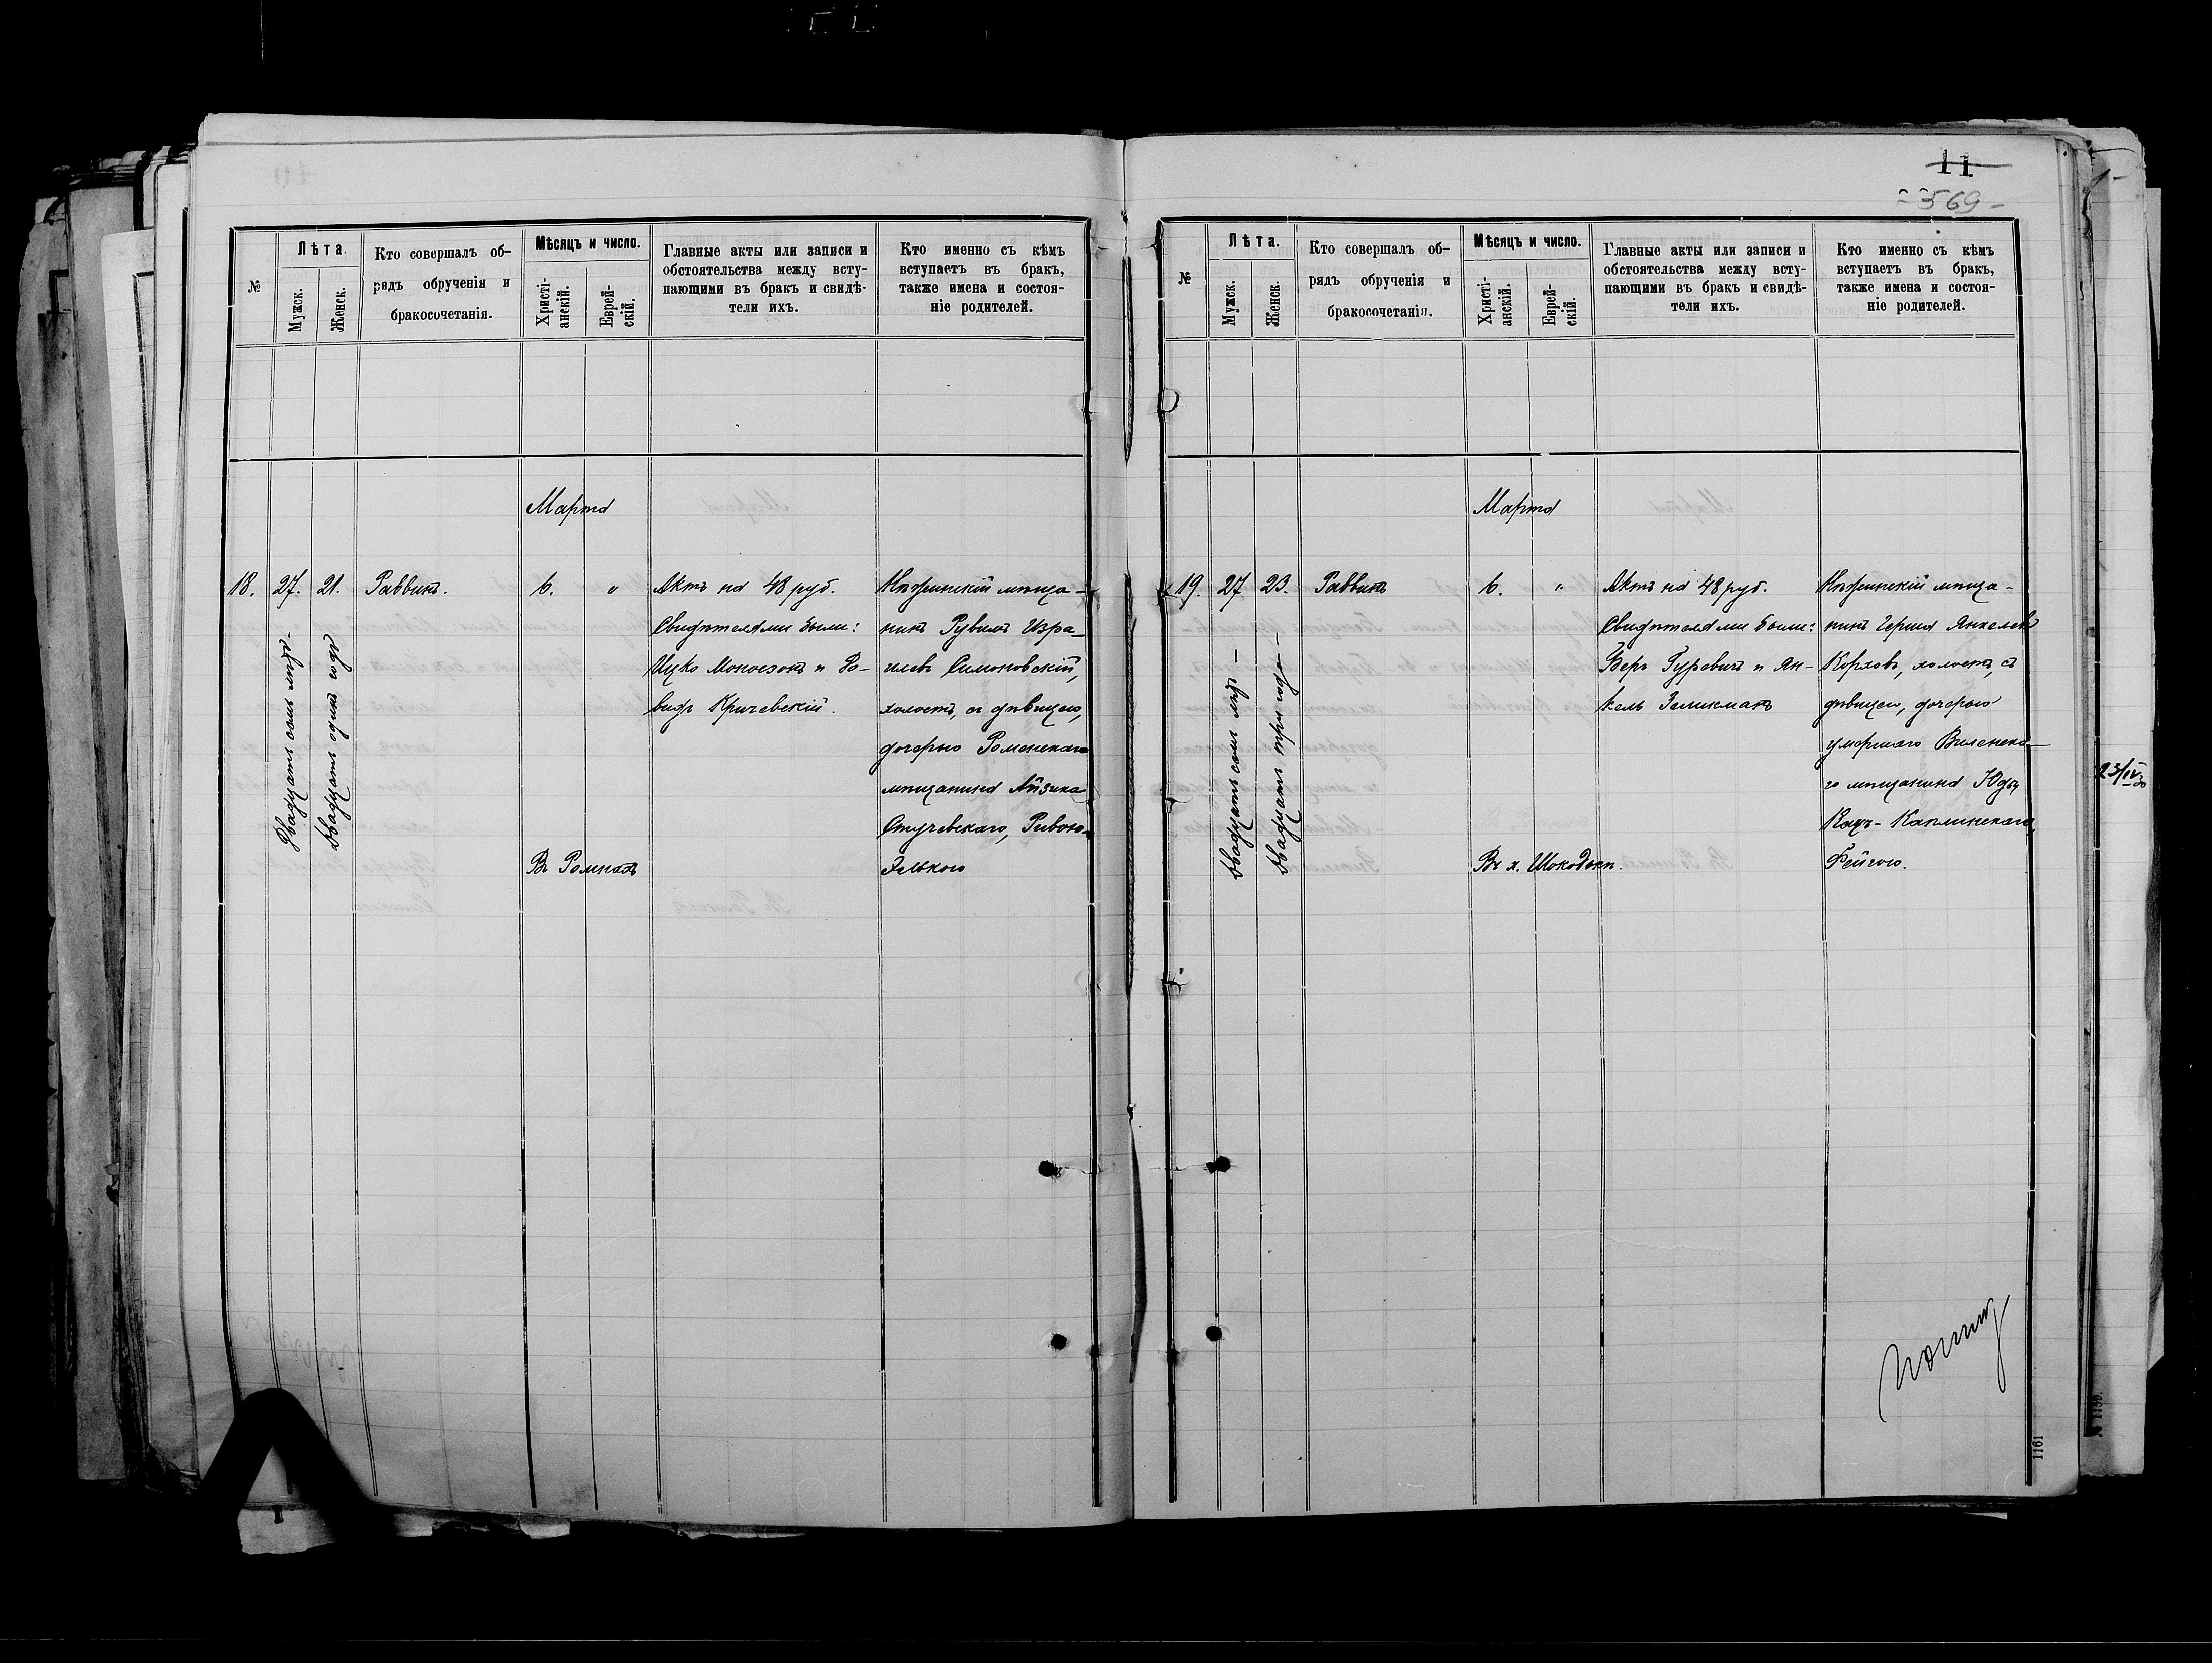 №
Лѣта.
Мужск.
Женск.
Кто совершалъ об-
рядъ обрученія и
бракосочетанія.
Мѣсяцъ и число.
Христі-
анскій.
Еврей-
скій.
Главные акты или записи и
обстоятельства между всту-
пающими въ бракъ и свидѣ-
тели ихъ.
Кто именно съ кѣмъ
вступаетъ въ бракъ,
также имена и состоя-
ніе родителей.
Марта
18.
27.
21.
Двадцать семь лѣтъ-
Двадцать одинъ годъ
Раввинъ.
6.
"
Актъ на 48 руб.
Свидѣтелями были:
Ицко Моносзонъ и До-
видъ Кричевскій.
Въ Ромнахъ
Нѣжинскій мѣща-
нинъ Рувимъ Изра-
илевъ Симоновскій,
холостъ, съ дѣвицею,
дочерью Роменскаго
мѣщанина Айзика
Стучевскаго, Ривою-
Элькою
11
569-
№
Лѣта.
Мужск.
Женск.
Кто совершалъ об-
рядъ обрученія и
бракосочетанія.
Мѣсяцъ и число.
Христі-
анскій.
Еврей-
скій.
Главные акты или записи и
обстоятельства между всту-
пающими въ бракъ и свидѣ-
тели ихъ.
Кто именно съ кѣмъ
вступаетъ въ бракъ,
также имена и состоя-
ніе родителей.
Марта
19.
27
23.
Двадцать семь лѣтъ —
Двадцать три года —
Раввинъ
6.
"
Актъ на 48 руб.
Свидѣтелями были:
Беръ Гуревичъ и Ян-
кель Зеликманъ
Въ х.
Нѣжинскій мѣща-
нинъ Герша Янкелевъ
Корховъ, холостъ, съ
дѣвицею, дочерью
умершаго Виленска-
го мѣщанина Юды
Кацъ-Каплинскаго,
Фейгою.
23/IV
1161
№ 1159.